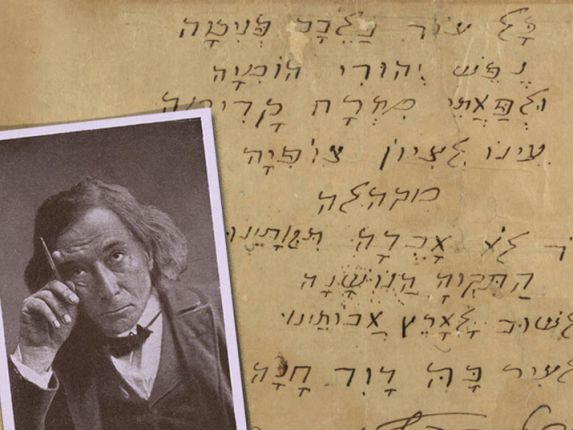 כָּל עוֹד בַּלֵּבָב פְּנִימָה
נֶפֶשׁ יְהוּדִי הוֹמִיָּה
וּלְפַאֲתֵי מִזְרָח קָדִימָה
עֵינוֹ לְצִיּוֹן צוֹפִיָּה
מקהלה
לֹא אָבְדָה תִקְוָתֵינוּ
הַתִּקְוָה הַנּוֹשָׁנָה
לָשׁוּב לָאָרֶץ אֲבוֹתֵינוּ
לְעִיר בָּהּ דָוִד חָנָה